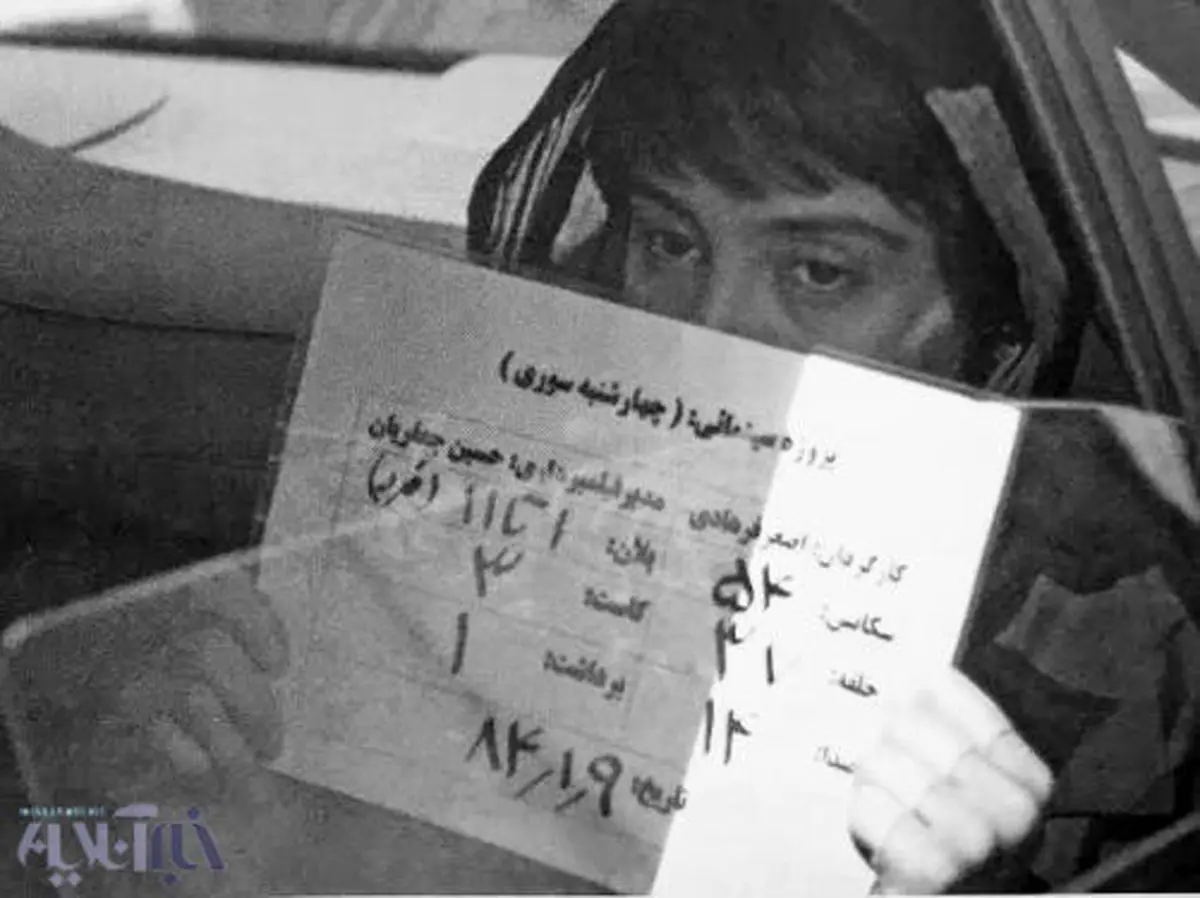 پروژه سینمائی: (چهارشنبه سوری)
کارگردان: اصغر فرهادی مدیر فیلمبرداری: حسین جعفریان
سکانس: ۵۴ پلان: ۱ تا ۱۱ (فرد)
حلقه: ۲۱ کاست: ۳
صدا: ۱۲ برداشت: ۱
تاریخ: ۸۴،۱،۹
خبرآنلاین